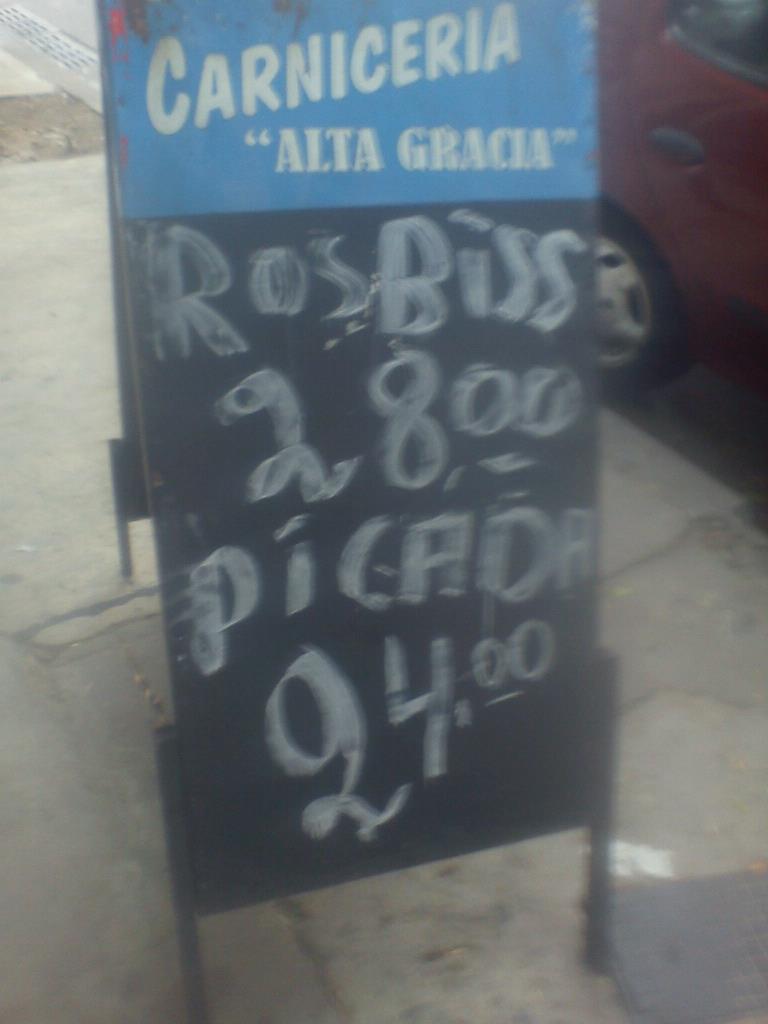 CARNICERIA
"ALTA GRACIA"
ROSBISS
28,00
PICADA
24.00